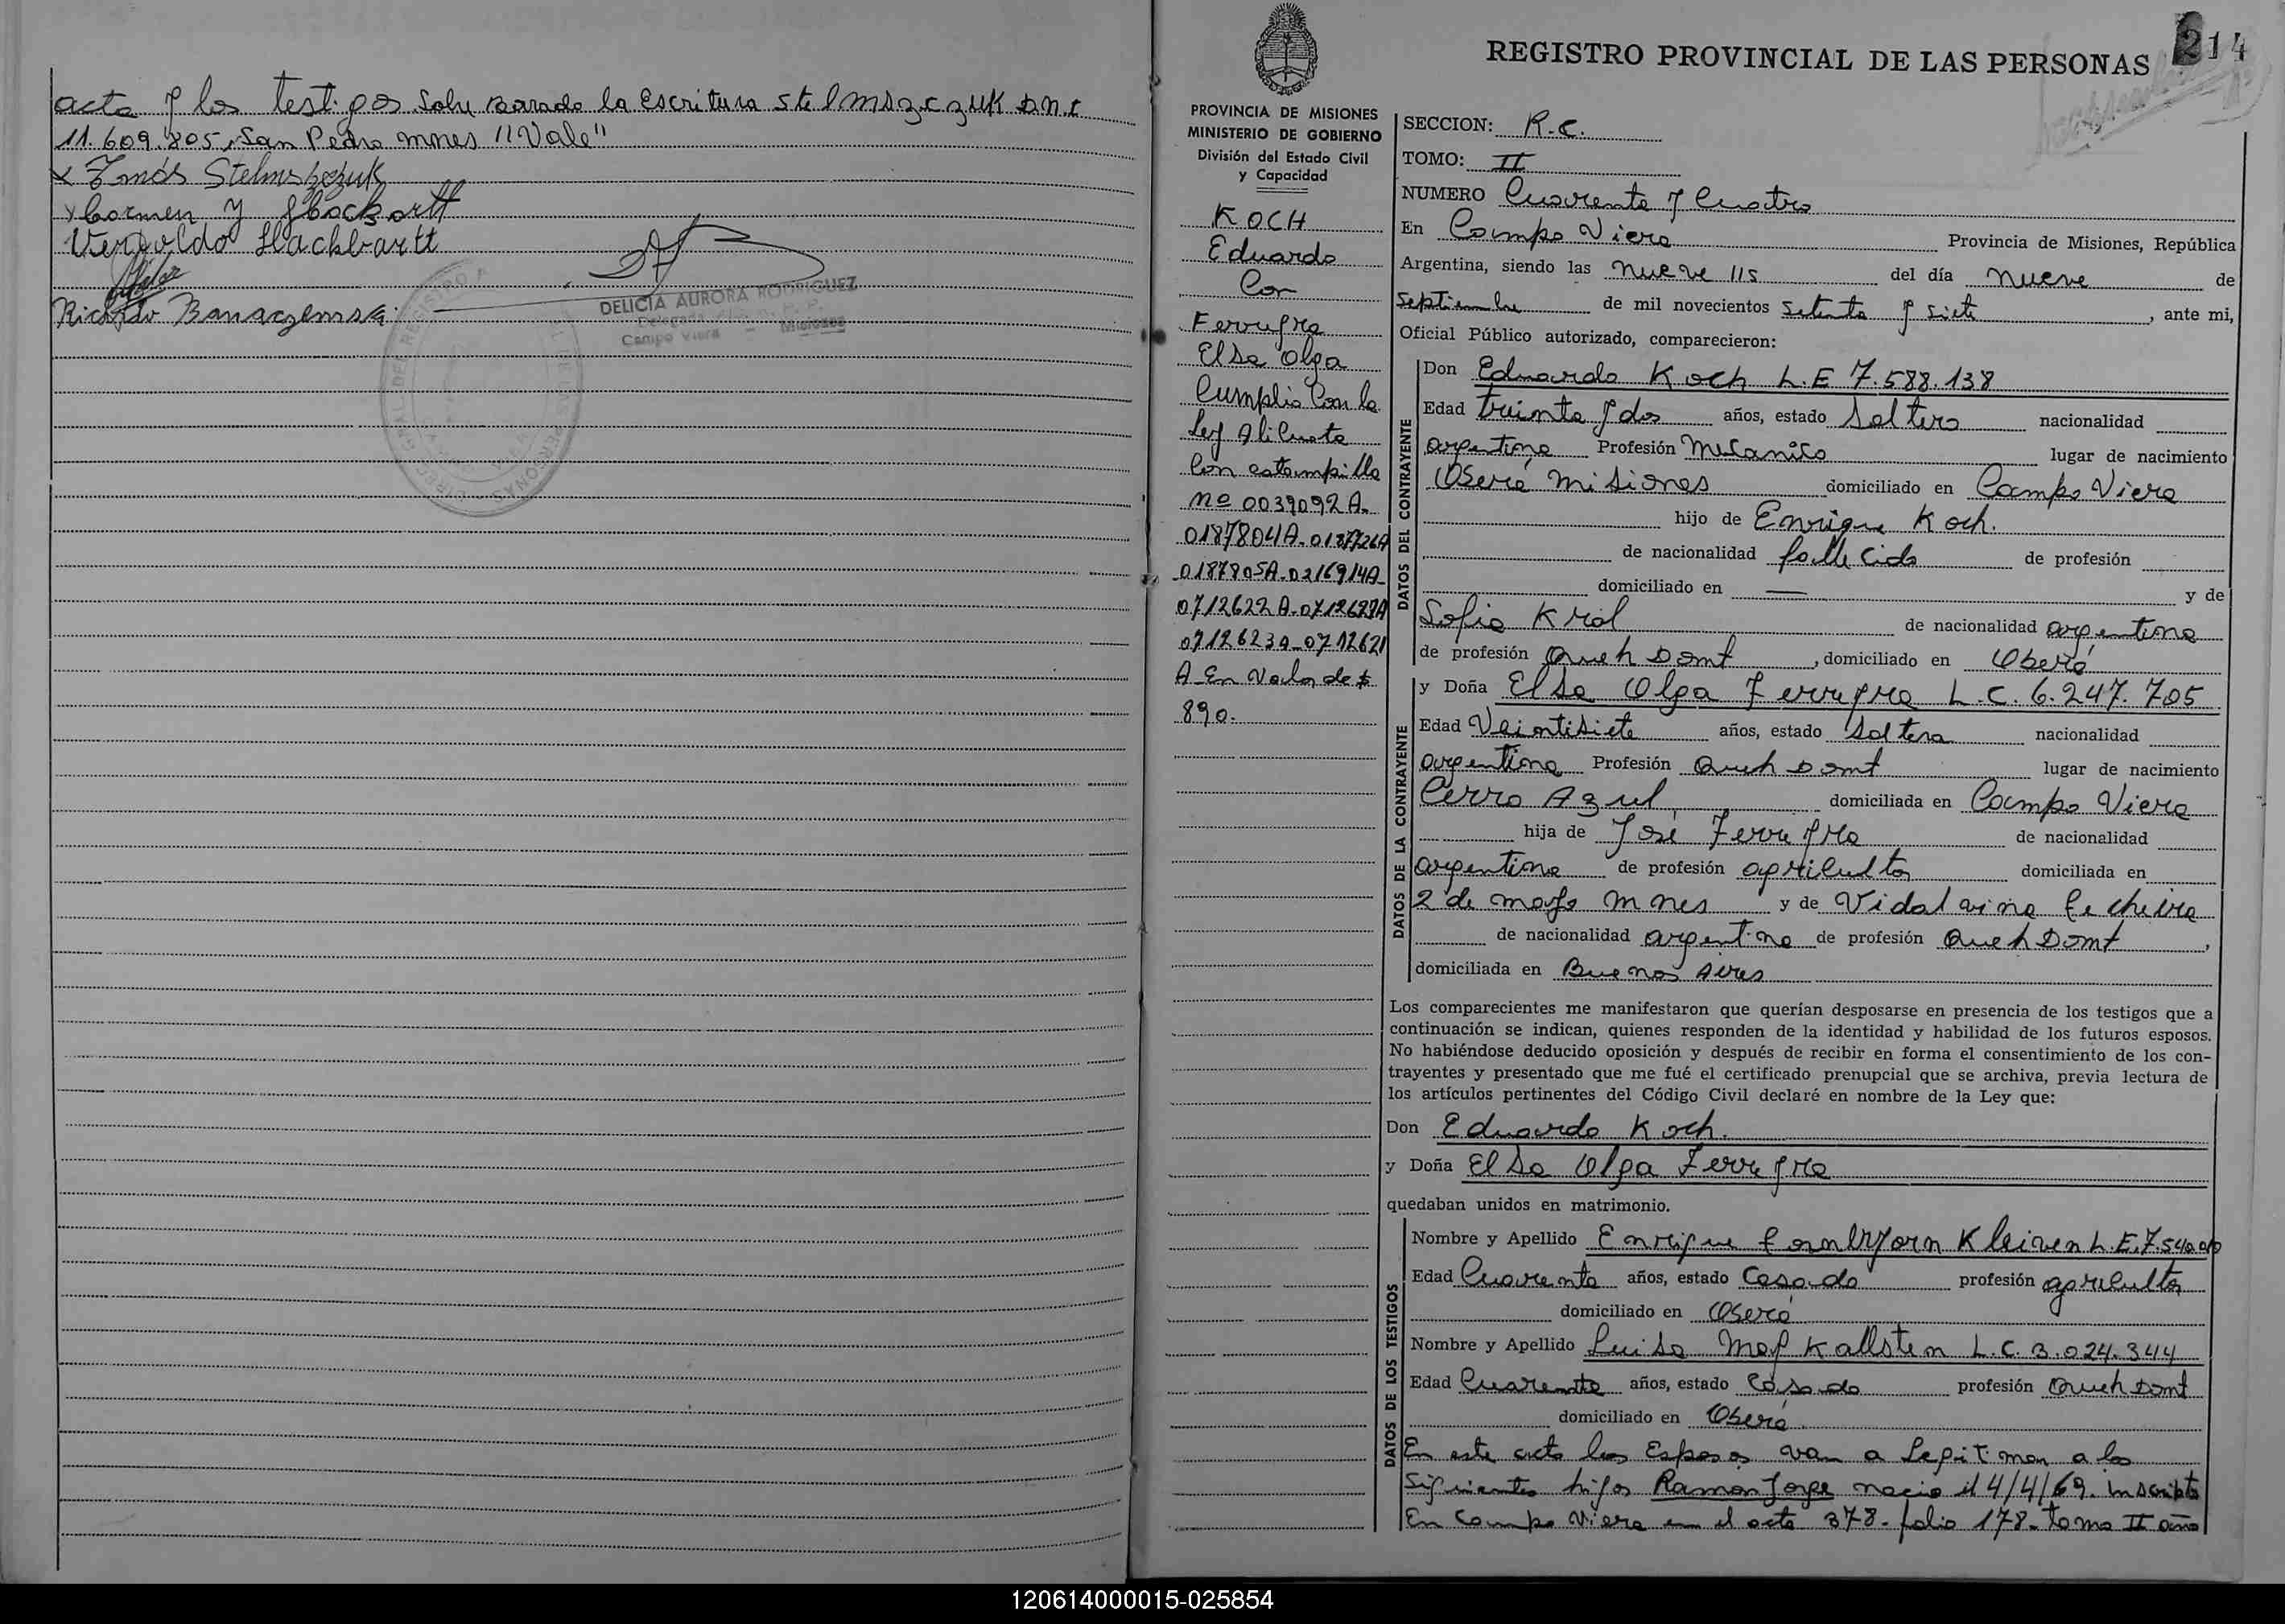 acta y los testigos Sobre Rarado la Escritura StelmaszczuK D.N.I
11.609.805, San Pedro mnes "Vale"
x Tomás Stelmaszczuk
x Carmen Y Hackartt
Vervaldo Hackbartt
Ricardo Banaczemski
DELICIA AURORA RODRIGUEZ
Delegada
Campo Viera - Misiones
214
REGISTRO PROVINCIAL DE LAS PERSONAS
PROVINCIA DE MISIONES
MINISTERIO DE GOBIERNO
División del Estado Civil
y Capacidad
KOCH
Eduardo
Con
Ferreyra
Elsa Olga
Cumplio Con la
Ley Alicuota
Con estampilla
Nº 0039092A.
0187804A-0187726A
0187805A-0216914A-
0712622A-0712623A
0712623A-0712621
A En Valor de $
890.
SECCION: R.C.
TOMO: II
NUMERO Cuarenta y Cuatro
En Campo Viera Provincia de Misiones, República
Argentina, siendo las nueve 115 del día nueve de
Septiembre de mil novecientos Setenta y siete, ante mi,
Oficial Público autorizado, comparecieron:
DATOS DEL CONTRAYENTE
Don Eduardo Koch L.E 7.588.138
Edad treinta y dos años, estado Soltero nacionalidad
argentina Profesión Mecanico lugar de nacimiento
Oberá Misiones domiciliado en Campo Viera
hijo de Enrique Koch.
de nacionalidad fallecido de profesión
domiciliado en — y de
Sofia Krol de nacionalidad argentina
de profesión Queh Domt, domiciliado en Oberá
DATOS DE LA CONTRAYENTE
y Doña Elsa Olga Ferreyra L.C. 6.247.705
Edad Veintisiete años, estado Soltera nacionalidad
argentina Profesión Queh Domt lugar de nacimiento
Cerro Azul domiciliada en Campo Viera
hija de José Ferreyra de nacionalidad
argentina de profesión agricultor domiciliada en
2 de mayo mnes y de Vidalvina
de nacionalidad argentina de profesión Queh Domt,
domiciliada en Buenos Aires
Los comparecientes me manifestaron que querían desposarse en presencia de los testigos que a
continuación se indican, quienes responden de la identidad y habilidad de los futuros esposos.
No habiéndose deducido oposición y después de recibir en forma el consentimiento de los con-
trayentes y presentado que me fué el certificado prenupcial que se archiva, previa lectura de
los artículos pertinentes del Código Civil declaré en nombre de la Ley que:
Don Eduardo Koch.
y Doña Elsa Olga Ferreyra
quedaban unidos en matrimonio.
DATOS DE LOS TESTIGOS
Nombre y Apellido Enrique Kleiven L.E.
Edad Cuarenta años, estado Casado profesión agricultor
domiciliado en Oberá
Nombre y Apellido Luisa May Kallsten L.C. 3.024.344
Edad Cuarenta años, estado Casada profesión Queh Domt
domiciliado en Oberá
En este acto los Esposos van a Legitimar a los
Siguientes hijos Ramon Jorge nacio el 4/4/69. Inscripto
En Campo Viera en el acta 378- folio 178- tomo II año
120614000015-025854